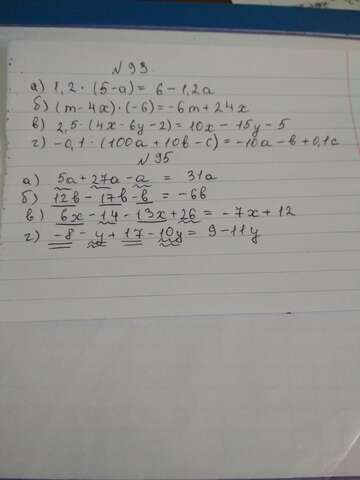 №93
а) 1,2 · (5-а) = 6 - 1,2а
б) (m - 4x) · (-6) = -6m + 24x
в) 2,5 · (4x - 6y - 2) = 10x - 15y - 5
г) -0,1 · (100а + 10в - с) = -10а - в + 0,1с
№95
а) 5а + 27а - а = 31а
б) 12в - 17в - в = -6в
в) 6x - 14 - 13x + 26 = -7x + 12
г) -8 - y + 17 - 10y = 9 - 11y